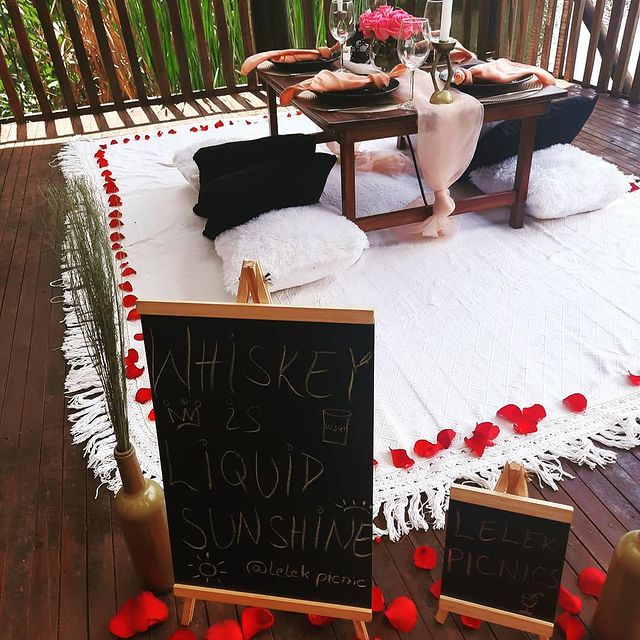 WHiSKEY
iS
LiQUiD
SUNSHiNE
@lelek picnic
LELEK
PICNICS